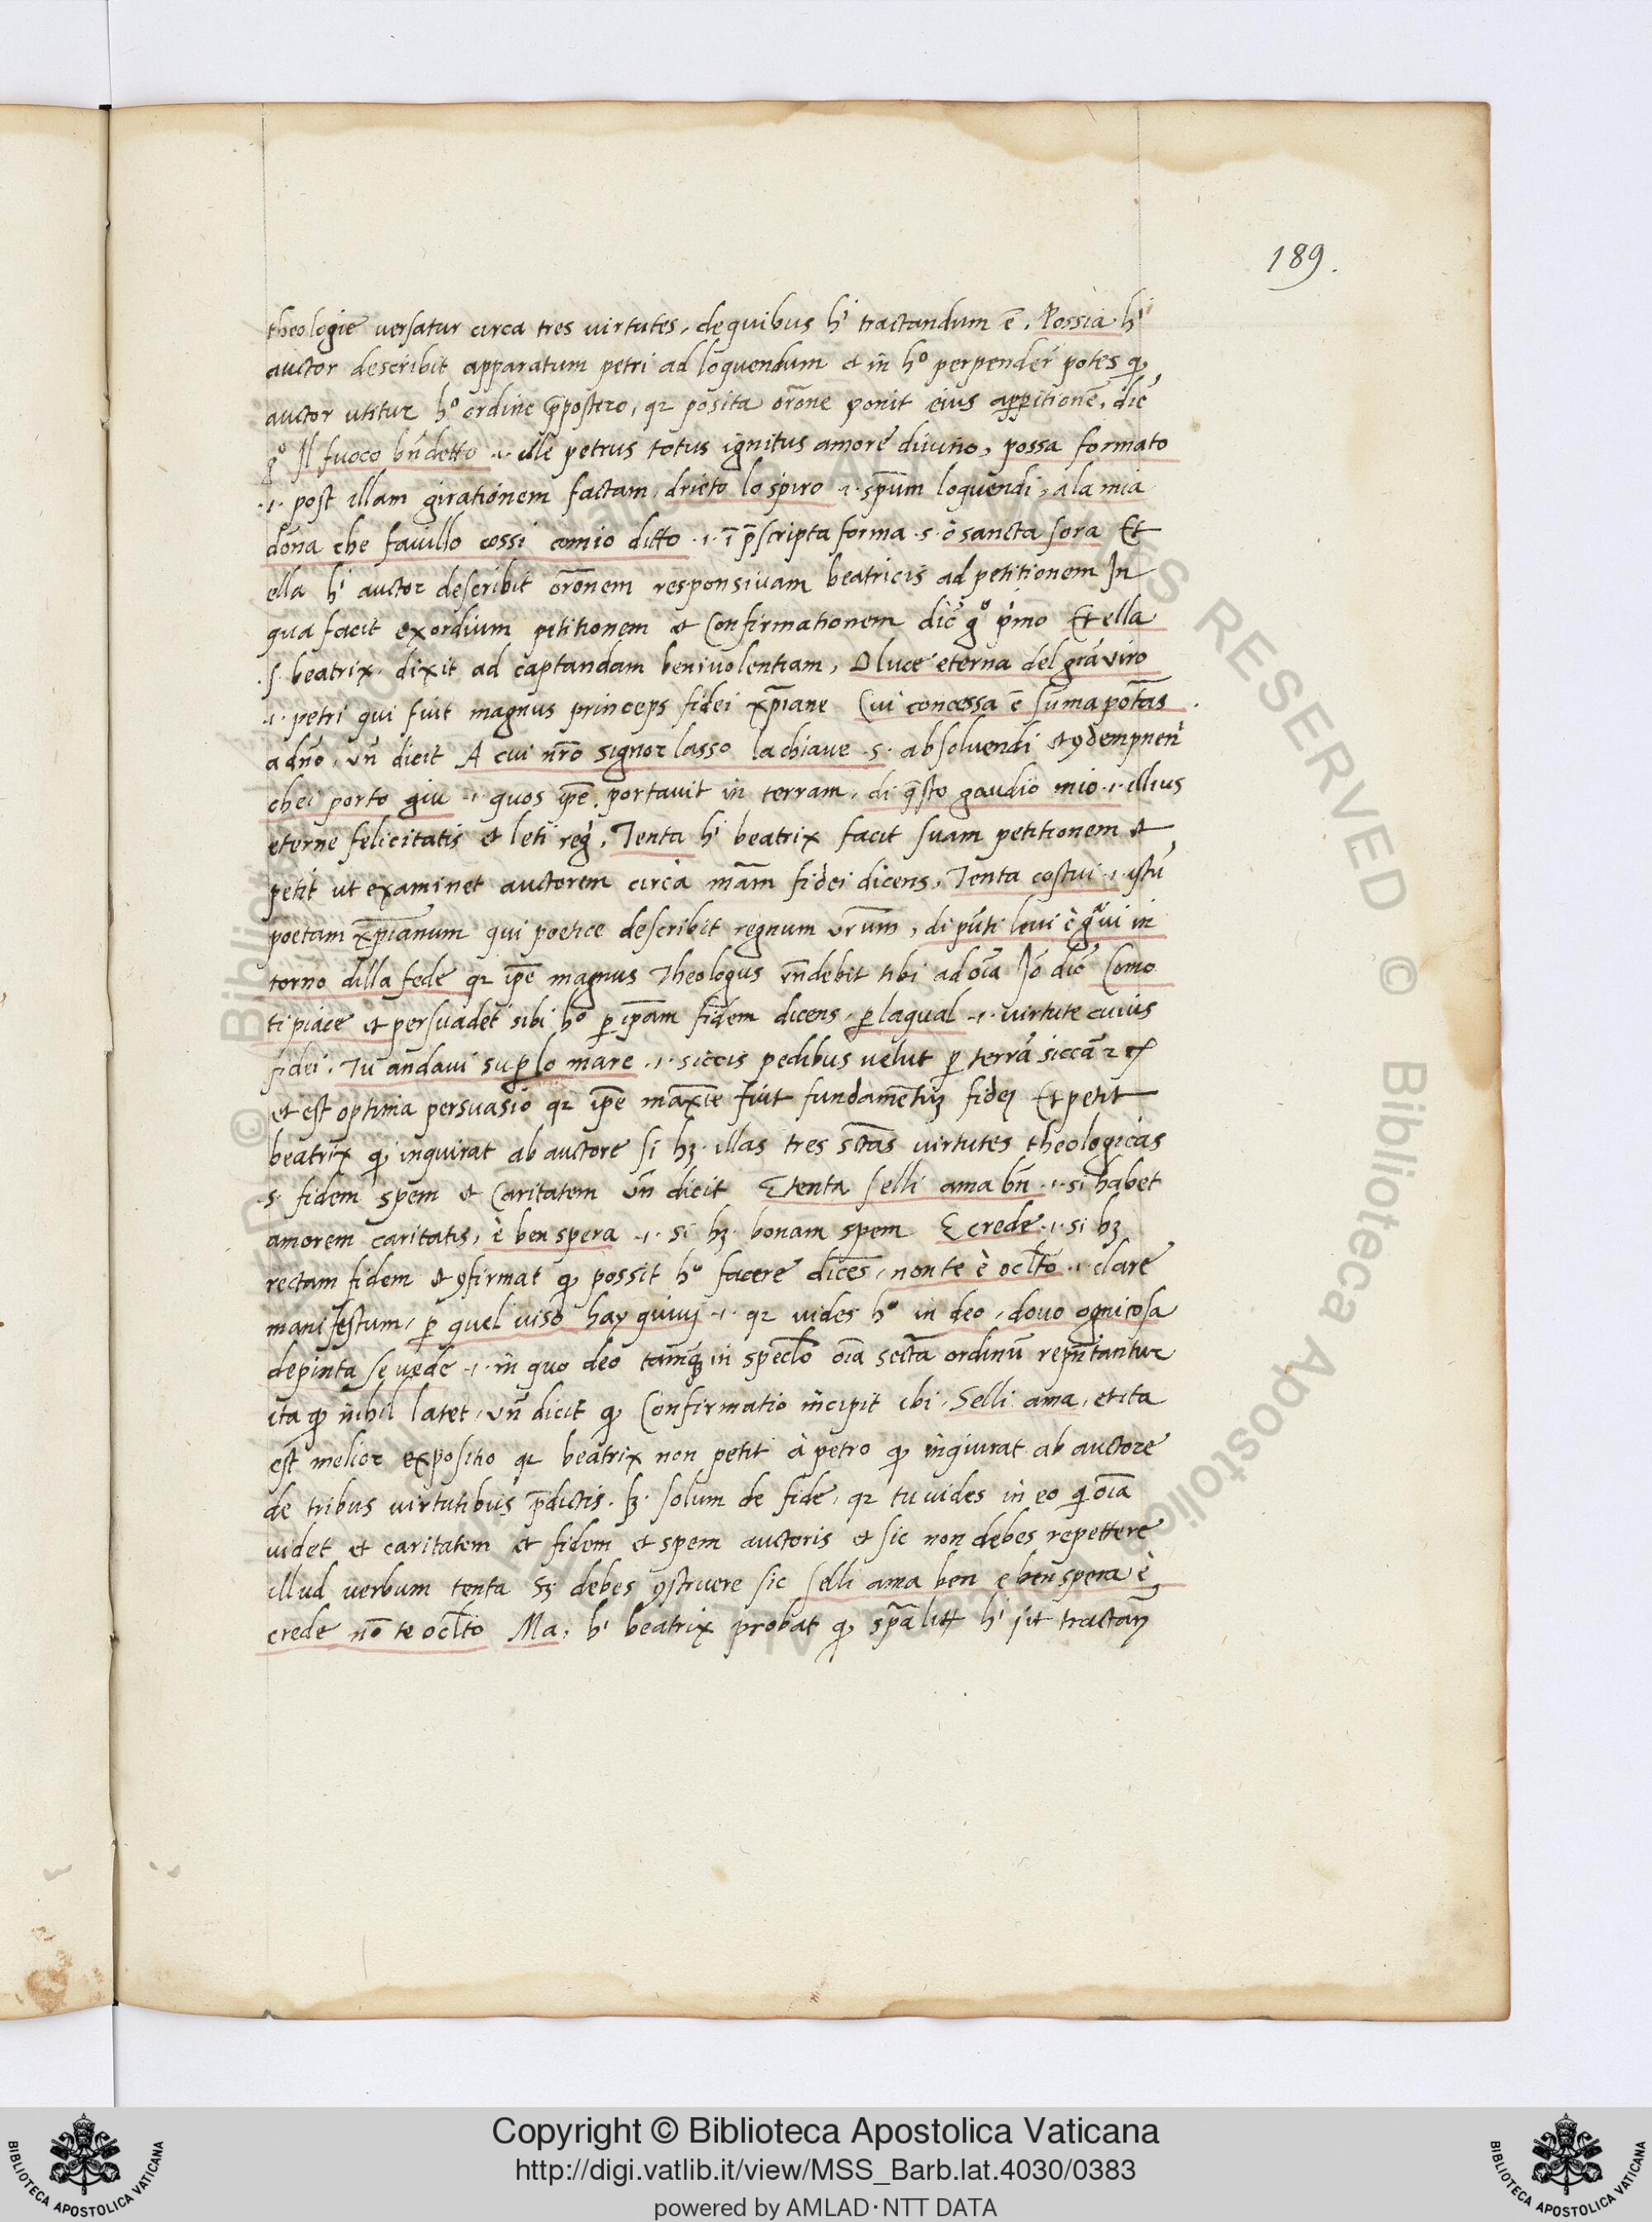 189.
theologie versatur circa tres virtutes, de quibus hⁱ tractandum ē. Possia hⁱ
auctor describit apparatum petri ad loquendum et in hº perpender̄ potes ꝙ
auctor utitur hº ordine p̄postero, qr posita orōne ponit eius appetitionē, dic̄
gº Il fuoco bn̄detto .i. ille petrus totus ignitus amore divino, possa formato
.i. post illam girationem factam, drieto lo spiro .i. spūm loquendi, a la mia
dōna che favillo cossi comio ditto .i. ī p̄scripta forma .s. ò sancta sora Et
ella hⁱ auctor describit orōnem responsivam beatricis ad petitionem In
qua facit exordium petitionem et Confirmationem dic̄ gº pⁱmo Et ella
.s. beatrix dixit ad captandam benivolentiam, O luce eterna del grā viro
.i. petri qui fuit magnus princeps fidei xp̄iane Cui concessa ē sūma potās
a dnō, vn̄ dicit A cui nr̄o signor lasso la chiave .s. absolvendi et ꝯdempnen̄
chei porto giu .i. quos ip̄e portavit in terram, di q̄sto gaudio mio .i. illius
eterne felicitatis et leti reḡ. Tenta hⁱ beatrix facit suam petitionem et
petit ut examinet auctorem circa mām fidei dicens, Tenta costui .i. istū
poetam xp̄ianum qui poetice describit regnum vr̄um, di pūti levi è gᵃvi in
torno dilla fede qr ip̄e magnus Theologus rn̄debit tibi ad oīa Iō dic̄ Como
ti piace et persuadet sibi hº ꝑ ip̄am fidem dicens, ꝑ la qual .i. virtute cuius
fidei. Tu andavi suꝑ lo mare .i. siccis pedibus velut ꝑ terrā siccā
et est optima persuasio qr ip̄e maxīe fuit fundamētuꝫ fidei Et petit
beatrix ꝙ inquirat ab auctore si hꝫ illas tres sctās virtutes theologicas
.s. fidem spem et Caritatem vn̄ dicit E tenta selli ama bn̄ .i. si habet
amorem caritatis, è ben spera .i. si hꝫ bonam spem E crede .i. si hꝫ
rectam fidem et ꝯfirmat ꝙ possit hº facere dicēs, non te è oclto .i. clare
manifestum, ꝑ quel viso hay quivi .i. qr vides hº in deo, dovo ogni cosa
depinta se vede .i. in quo deo tamq̄ in speclo oīa sectā ordinū repn̄tantur
ita ꝙ nihil latet, vn̄ dicit ꝙ Confirmatio incipit ibi, Selli ama, et ita
est melior expositio qr beatrix non petit à petro ꝙ inquirat ab auctore
de tribus virtutibus p̄dictis. sꝫ solum de fide, qr tu vides in eo qⁱ oīa
videt et caritatem et fidem et spem auctoris et sic non debes repettere
illud verbum tenta Sꝫ debes ꝯstruere sic selli ama ben e ben spera è
crede nō te oclto Ma, hⁱ beatrix probat ꝙ
Copyright © Biblioteca Apostolica Vaticana
http://digi.vatlib.it/view/MSS_Barb.lat.4030/0383
powered by AMLAD·NTT DATA
BIBLIOTECA APOSTOLICA VATICANA
BIBLIOTECA APOSTOLICA VATICANA